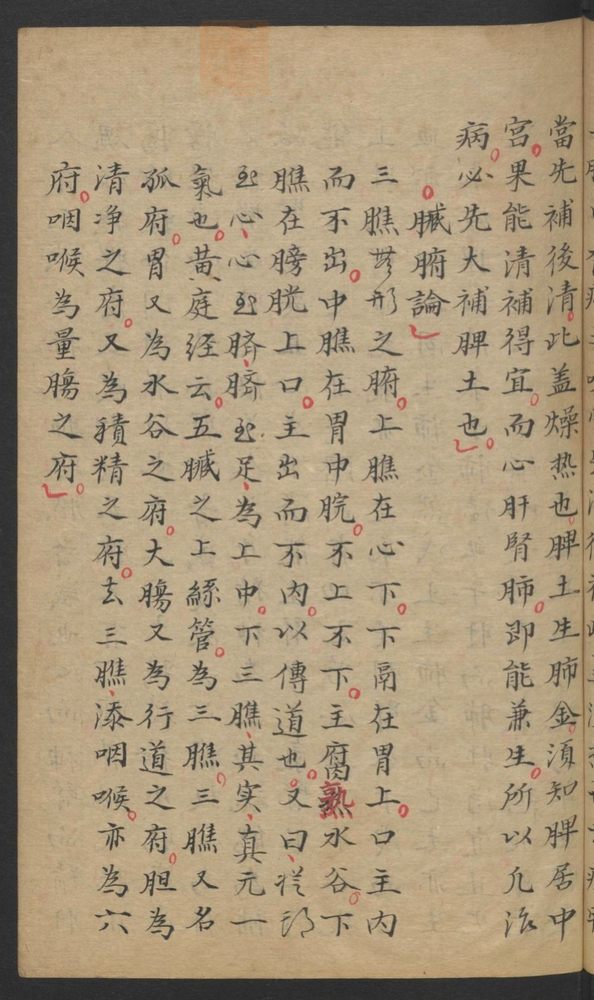 當先補後清。此盖燥热也。脾土生肺金。須知脾居中
宫。果能清補得宜。而心肝腎肺。即能兼生。所以凢治
病。必先大補脾土也。
。臓腑論
三膲無形之腑。上膲在心下。下鬲在胃上。口主内
而不出。中膲在胃中脘。不上不下。主腐熟水谷。下
膲在膀胱上口。主出而不内。以傳道也。又曰、從頭
至心、心至臍、臍至足、為上中。下三膲、其实、真元一
氣也。黄庭经云。五臓之上繇管。為三膲。三膲又名
孤府。胃又為水谷之府。大腸又為行道之府。胆為
清净之府。又為積精之府。去三膲、添咽喉。亦為六
府。咽喉為量腸之府。